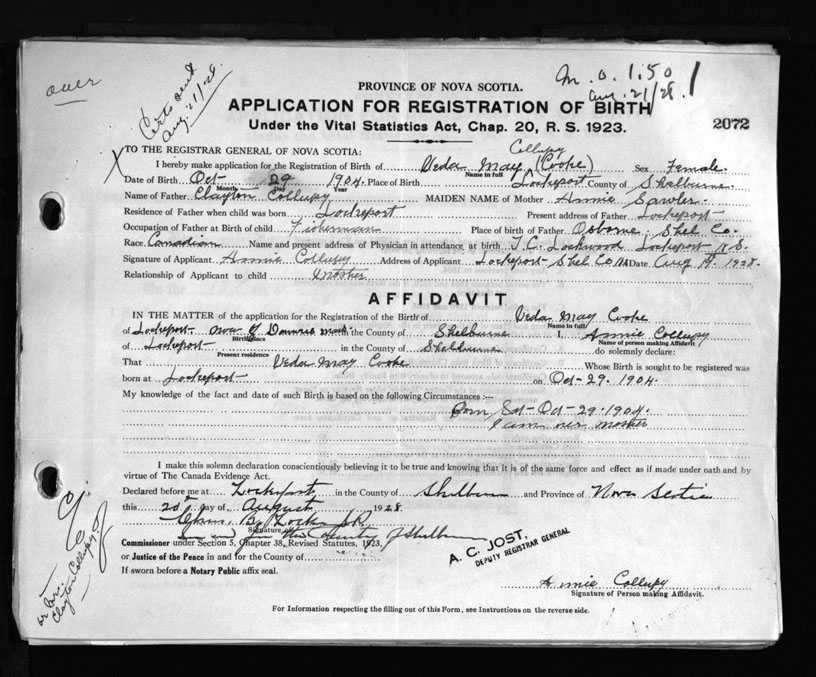 over
Certs sent
Aug. 21/28.
M.O. 1.50
Aug. 21/28.
PROVINCE OF NOVA SCOTIA.
APPLICATION FOR REGISTRATION OF BIRTH
Under the Vital Statistics Act, Chap. 20, R. S. 1923.
2072
X TO THE REGISTRAR GENERAL OF NOVA SCOTIA:
Collupy
I hereby make application for the Registration of Birth of Veda May (Cooke) Sex Female
Name in full
Date of Birth Oct 29 1904. Place of Birth Lockeport County of Shelburne
Month Day Year
Name of Father Clayton Collupy MAIDEN NAME of Mother Annie Sawler
Residence of Father when child was born Lockeport Present address of Father Lockeport
Occupation of Father at Birth of child Fisherman Place of birth of Father Osborne Shel Co.
Race Canadian Name and present address of Physician in attendance at birth J.C. Lockwood Lockeport N.S.
Signature of Applicant Annie Collupy Address of Applicant Lockeport Shel Co NS Date Aug 19. 1928.
Relationship of Applicant to child Mother
AFFIDAVIT
IN THE MATTER of the application for the Registration of the Birth of Veda May Cooke
Name in full
of Lockeport now of in the County of Shelburne I, Annie Collupy
Birthplace Name of person making Affidavit
of Lockeport in the County of Shelburne do solemnly declare:
Present residence
That Veda May Cooke Whose Birth is sought to be registered was
born at Lockeport on Oct-29. 1904.
My knowledge of the fact and date of such Birth is based on the following Circumstances :—
Born Sat-Oct-29-1904.
I am her mother
I make this solemn declaration conscientiously believing it to be true and knowing that it is of the same force and effect as if made under oath and by
virtue of The Canada Evidence Act.
Declared before me at Lockeport in the County of Shelburne and Province of Nova Scotia
this 20th day of August 1928
Signature of
in and for the County of Shelburne
Commissioner under Section 5, Chapter 38, Revised Statutes, 1923,
or Justice of the Peace in and for the County of
If sworn before a Notary Public affix seal.
A. C. JOST,
DEPUTY REGISTRAR GENERAL
Annie Collupy
Signature of Person making Affidavit.
For Information respecting the filling out of this Form, see Instructions on the reverse side.
Clayton Collupy